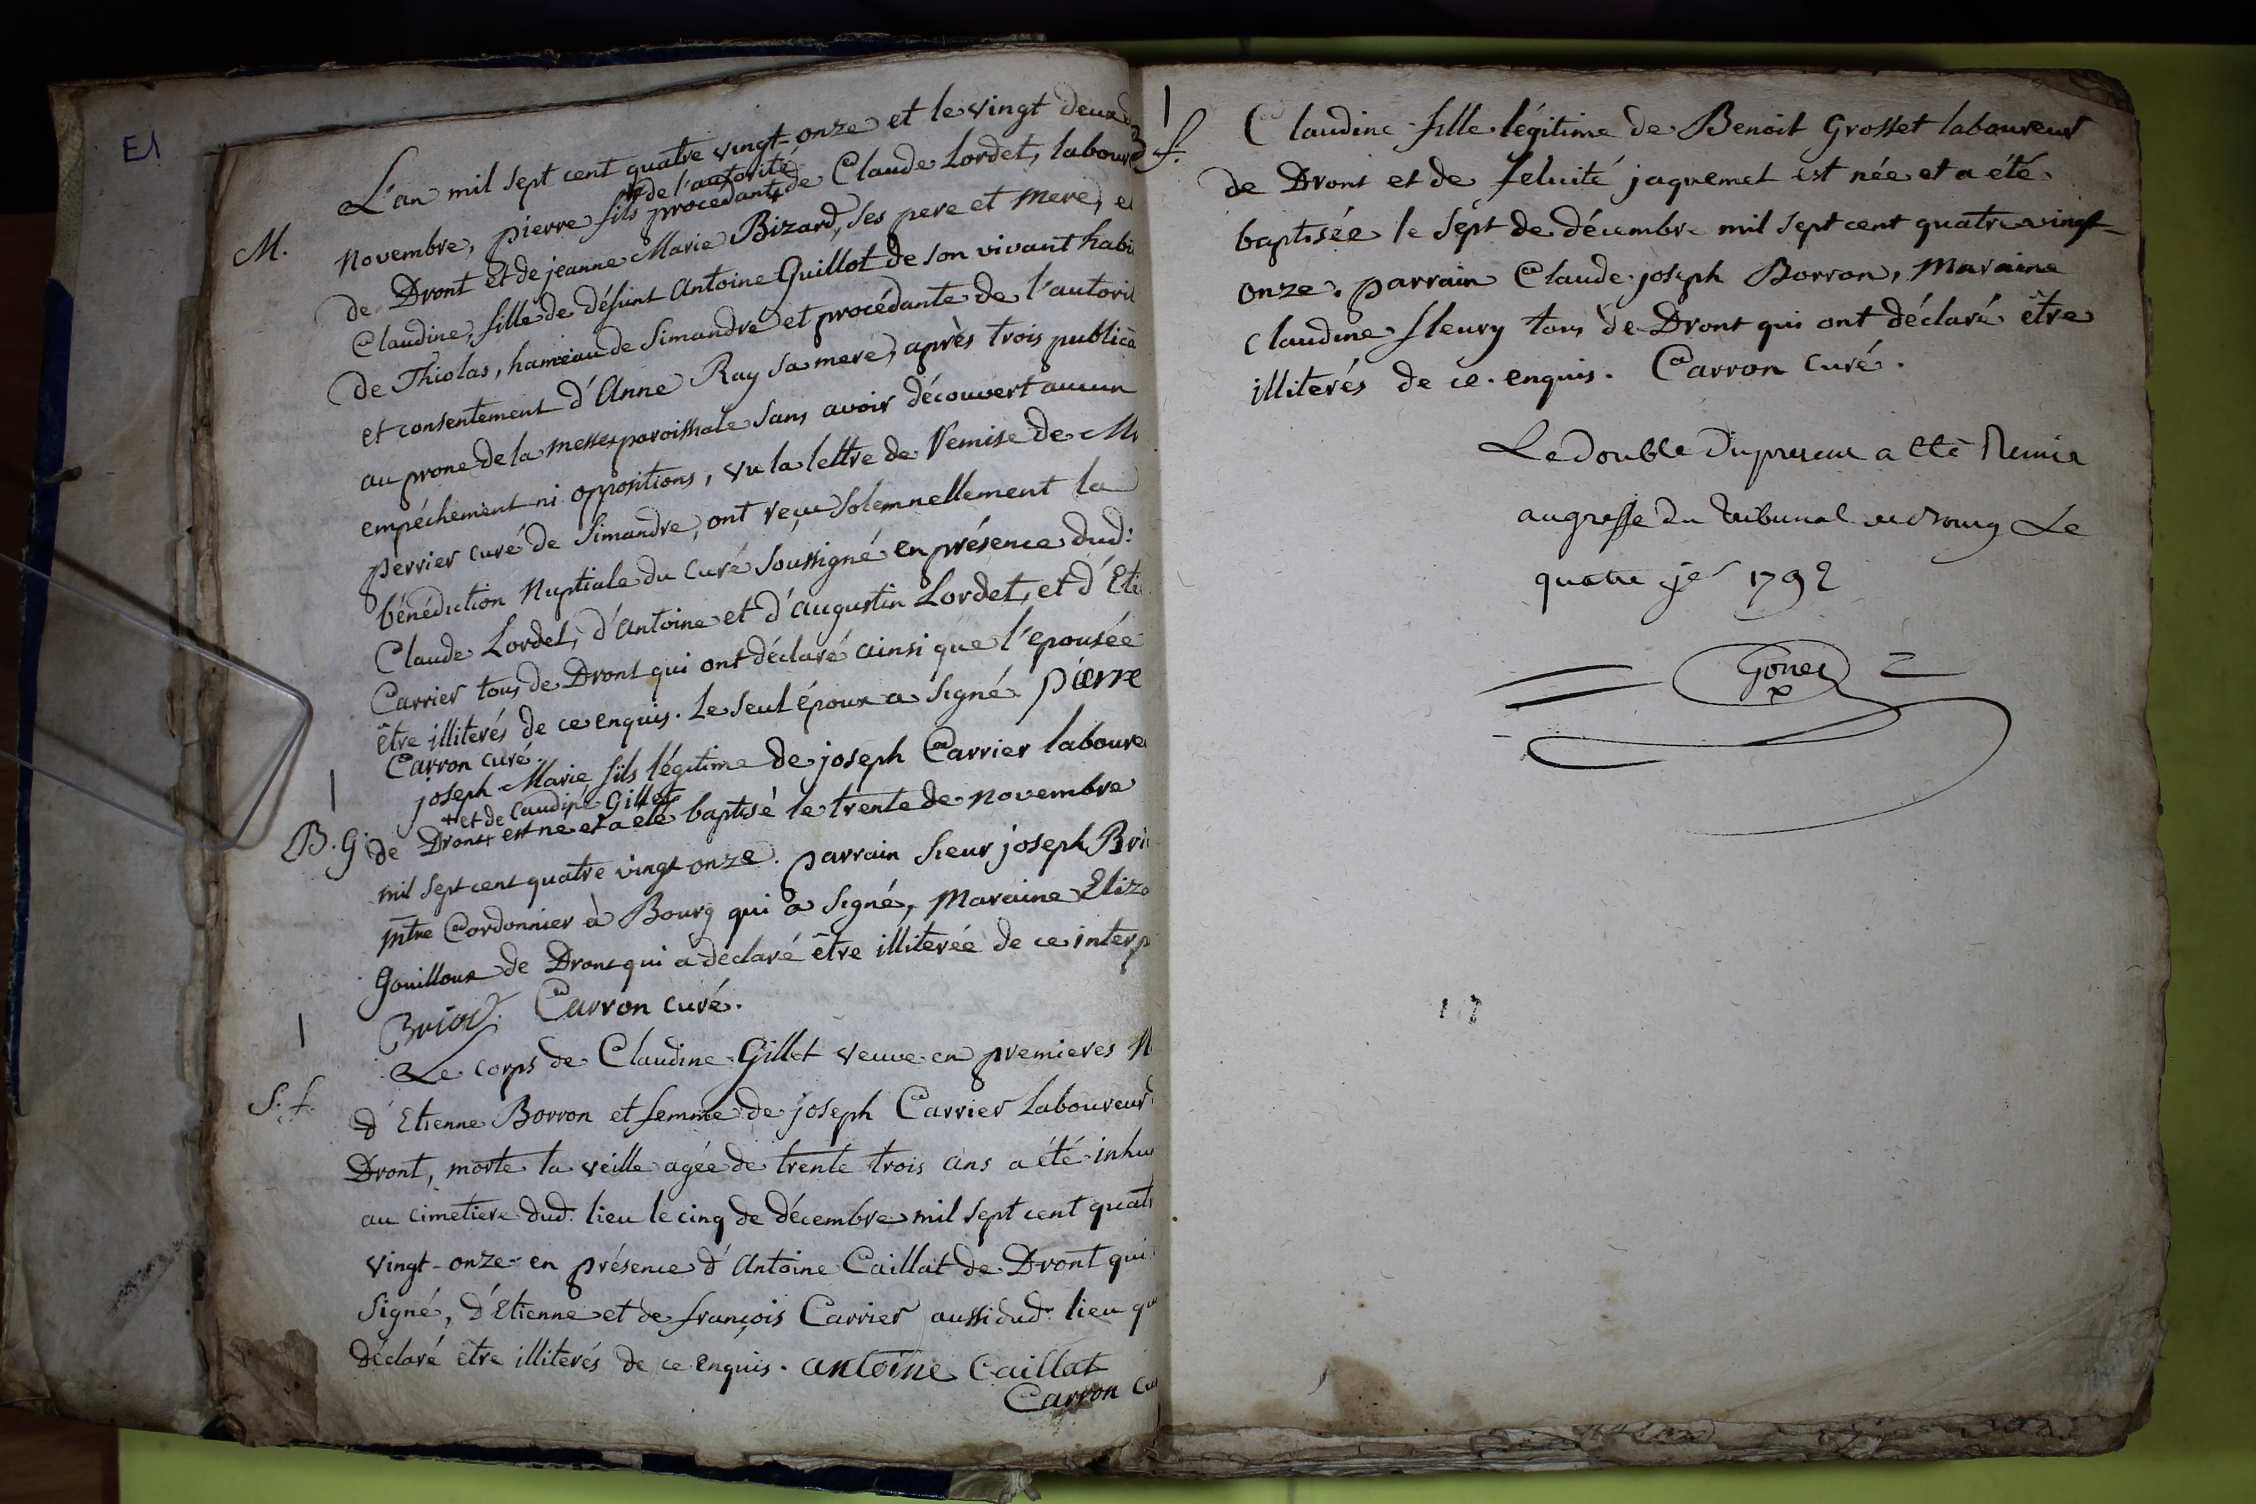 E1
L'an mil sept cent quatre vingt-onze et le vingt deux
M.
de l'autorité
novembre, pierre fils procedant de Claude Lordet, labour
de Dront et de jeanne Marie Bizard, ses pere et mere, et
Claudine, fille de défunt Antoine Guillot de son vivant habi
de Thiolas, hameau de Simandre et procédante de l'autori
et consentement d'Anne Ray sa mere, après trois public
au prone de la messe paroissiale sans avoir découvert aucun
empéchement ni oppositions, vu la lettre de remise de Mr
perrier curé de Simandre, ont reçu solemnellement la
bénédiction Nuptiale du curé soussigné en présence dud:
Claude Lordet, d'Antoine et d'augustin Lordet, et d'Eti
Carrier tous de Dront qui ont déclaré ainsi que l'epousée
être illiterés de ce enquis. Le seul époux a signé. pierre
Carron curé.
joseph-Marie fils légitime de joseph Carrier laboure
+ et de Caudine Gillet
B. G.
de Dront + est né et a été baptisé le trente de novembre
mil sept cent quatre vingt onze. parrain sieur joseph Bri
mtre Cordonnier à Bourg qui a signé, Maraine Eliza
Gouilloux de Dront qui a déclaré être illiterée de ce interp
Briod. Carron curé.
Le corps de Claudine Gillet veuve en premieres N
S. f.
d'Etienne Borron et femme de joseph Carrier Laboureur
Dront, morte la veille agée de trente trois ans a été inhu
au cimetiere dud. lieu le cinq de décembre mil sept cent quatr
vingt-onze en présence d'Antoine Caillat de Dront qui
signé, d'Etienne et de françois Carrier aussi dud. lieu qu
déclaré être illiterés de ce enquis. antoine Caillat
Carron cu
f.
Claudine fille légitime de Benoit Grosset laboureur
de Dront et de felicité jaquemet est née et a été
baptisée le sept de décembre mil sept cent quatre vingt-
onze. parrain Claude-joseph Borron, Maraine
claudine fleury tous de Dront qui ont déclaré être
illiterés de ce enquis. Carron curé.
Le double du present a été Remis
au greffe du tribunal de Bourg Le
quatre jer 1792